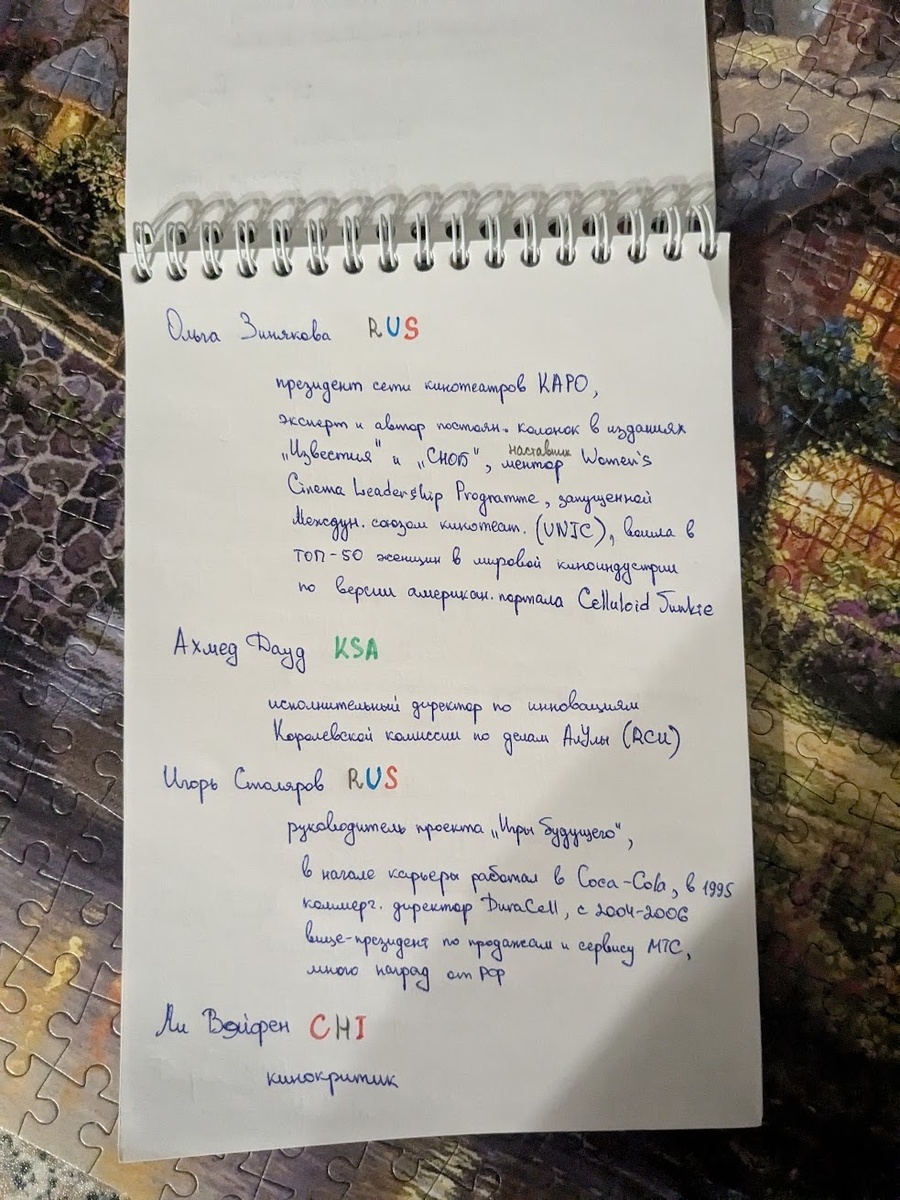 Ольга Зинякова RUS
президент сети кинотеатров КАРО,
эксперт и автор постоян. колонок в изданиях
наставник
„Известия" и „СНОБ", ментор Women's
Cinema Leadership Programme, запущенной
Междун. союзом кинотеат. (UNIC), вошла в
ТОП-50 женщин в мировой киноиндустрии
по версии американ. портала Celluloid Junkie
Ахмед Дауд KSA
исполнительный директор по инновациям
Королевской комиссии по делам АлУлы (RCU)
Игорь Столяров RUS
руководитель проекта „Игры будущего",
в начале карьеры работал в Coca-Cola, в 1995
коммерч. директор DuraCell, с 2004-2006
вице-президент по продажам и сервису МТС,
много наград от РФ
Ли Вэйфен CHI
кинокритик